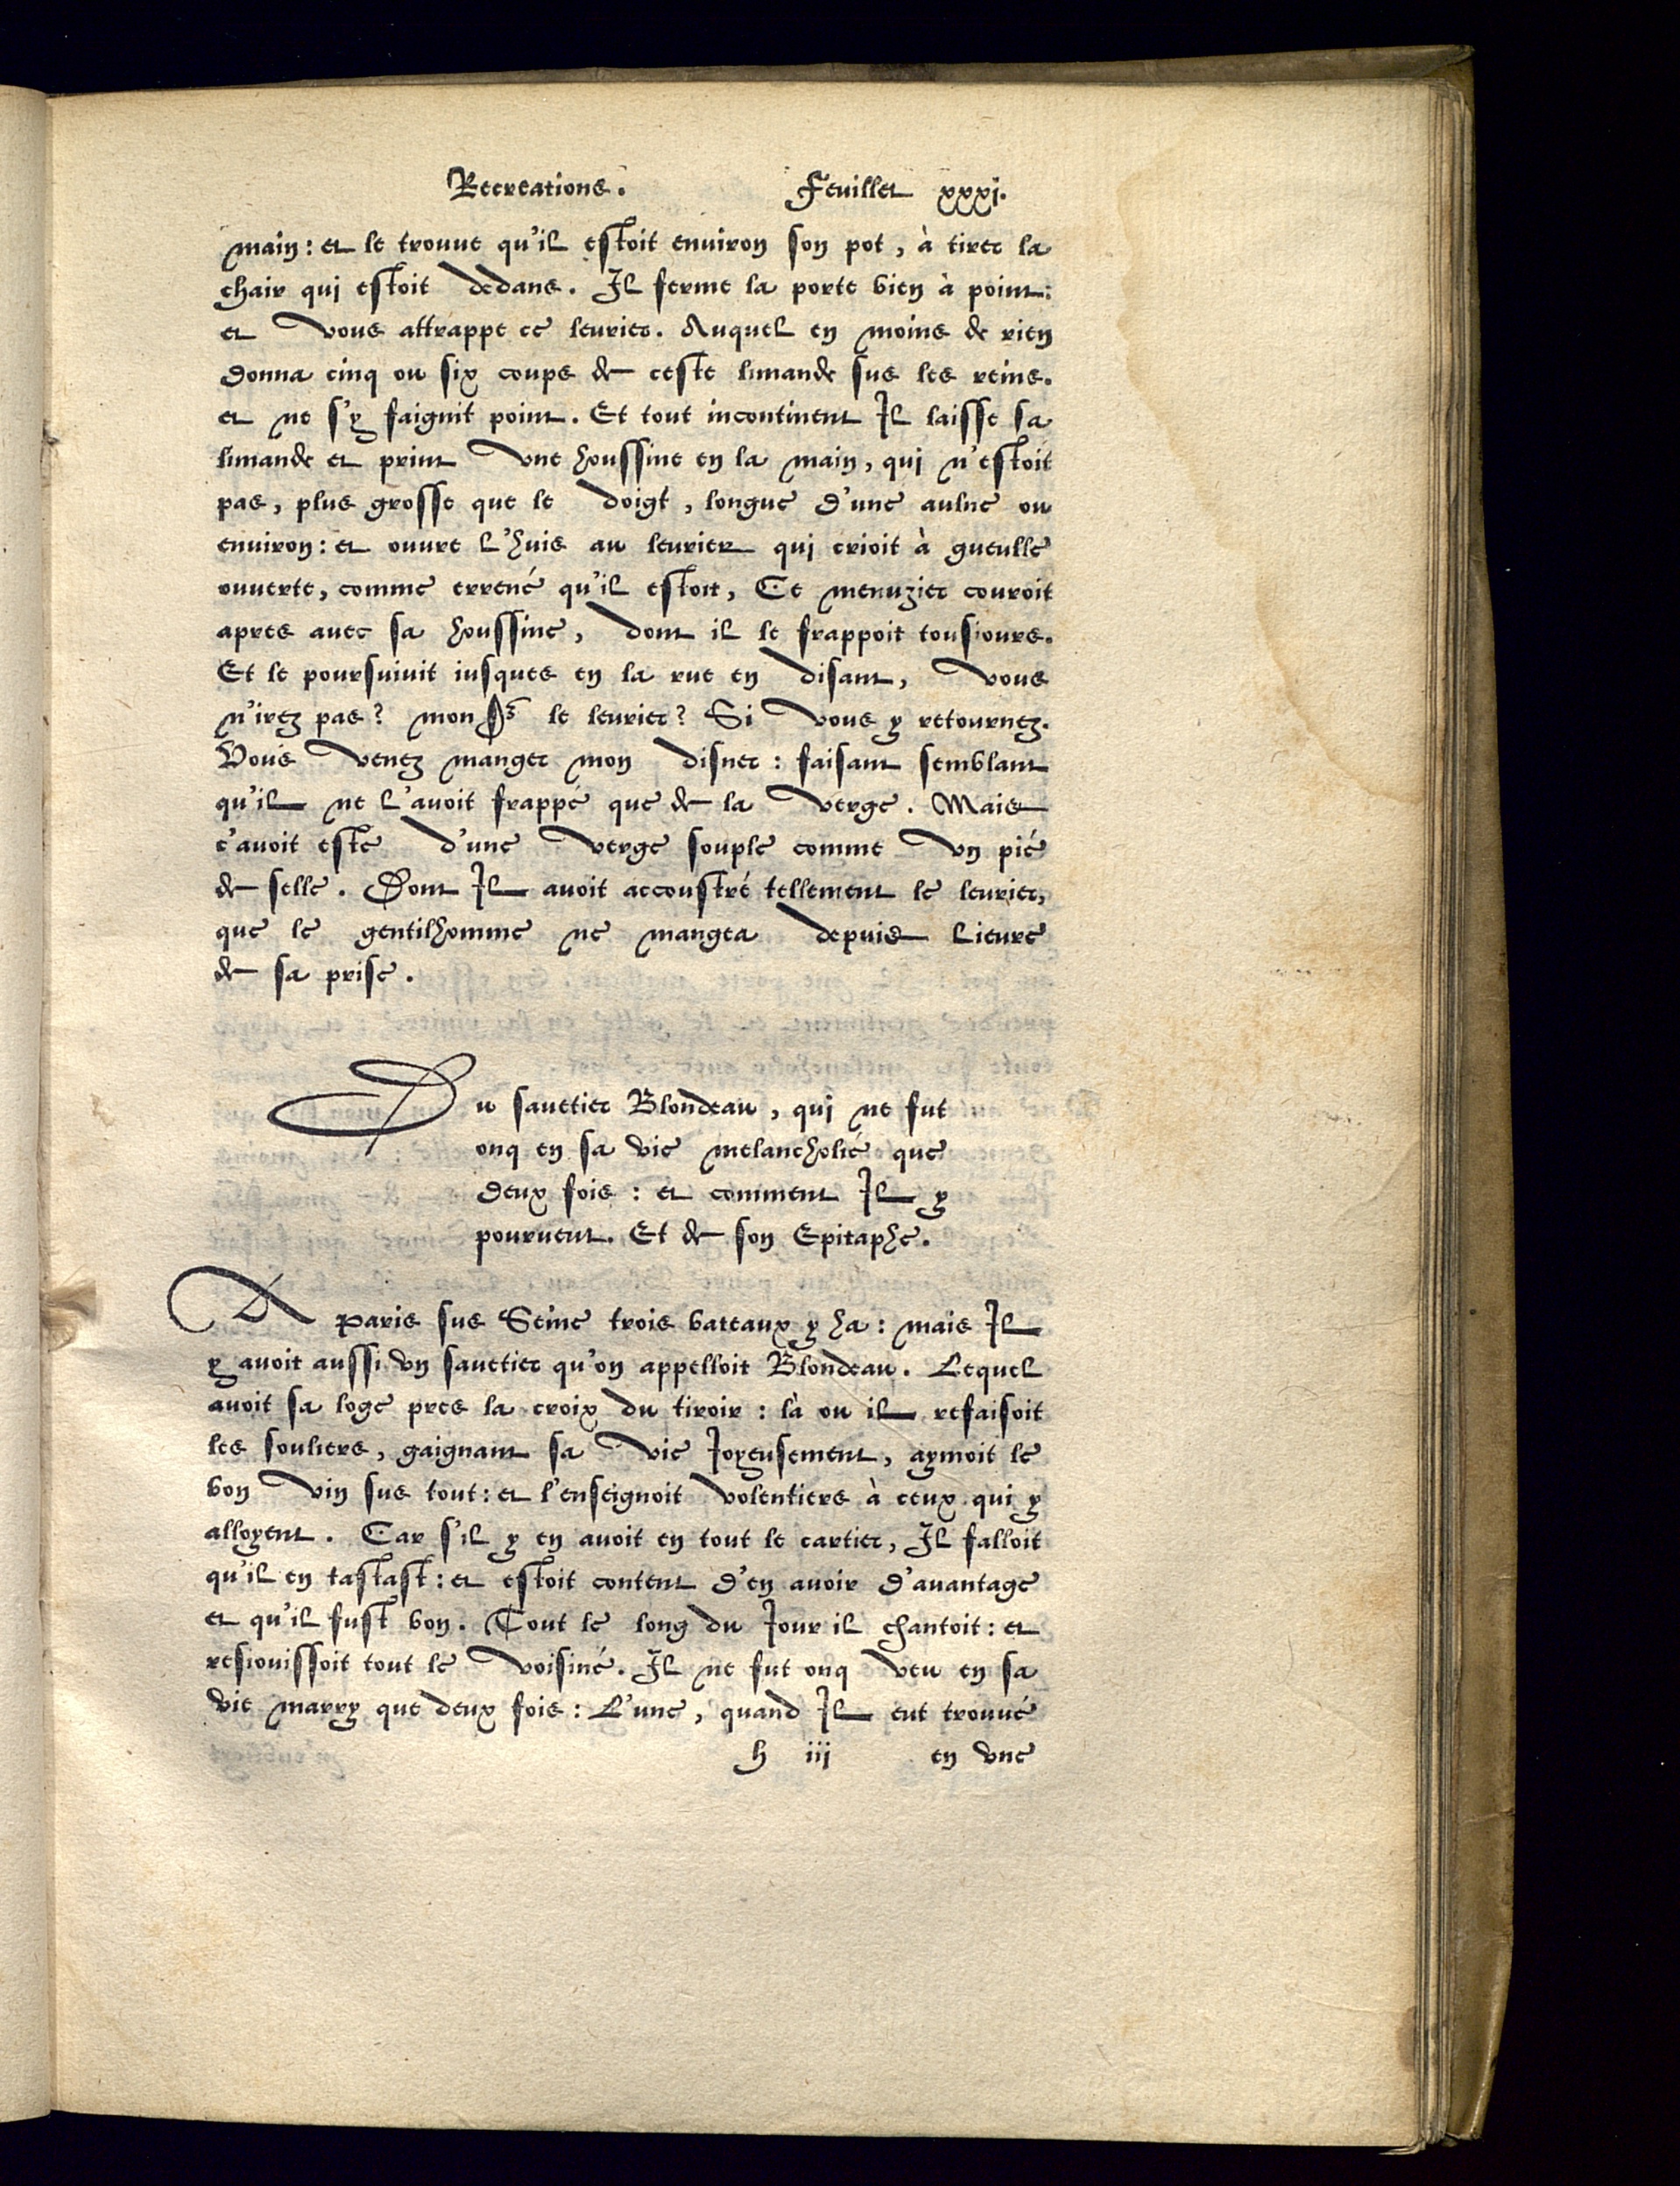 Recreations. Feuillet xxxj.
main: et le trouue qu'il estoit enuiron son pot, à tirer la
chair qui estoit dedans. Il ferme la porte bien à point:
et vous attrappe ce leurier. Auquel en moins de rien
donna cinq ou six coups de ceste limande sus les reins.
et ne s'y faignit point. Et tout incontinent Il laisse sa
limande et print vne houssine en la main, qui n'estoit
pas, plus grosse que le doigt, longue d'une aulne ou
enuiron: et ouure l'huis au leurier qui crioit à gueulle
ouuerte, comme errené qu'il estoit, Ce menuzier couroit
apres auec sa houssine, dont il le frappoit tousiours.
Et le poursuiuit iusques en la rue en disant, vous
n'irez pas? mon le leurier? Si vous y retournez.
Vous venez manger mon disner: faisant semblant
qu'il ne l'auoit frappé que de la verge. Mais
c'auoit esté d'une verge souple comme vn pié
de selle. Dont Il auoit accoustré tellement le leurier,
que le gentilhomme ne mangea depuis Lieure
de sa prise.
Du sauetier Blondeau, qui ne fut
onq en sa vie melancholié que
deux fois: et comment Il y
pourueut. Et de son Epitaphe.
A Paris sus Seine trois bateaux y ha: mais Il
y auoit aussi vn sauetier qu'on appelloit Blondeau. Lequel
auoit sa loge pres la croix du tiroir: là ou il refaisoit
les souliers, gaignant sa vie Joyeusement, aymoit le
bon vin sus tout: et l'enseignoit volentiers à ceux qui y
alloyent. Car s'il y en auoit en tout le cartier, Il falloit
qu'il en tastast: et estoit content d'en auoir d'auantage
et qu'il fust bon. Tout le long du Jour il chantoit: et
resiouissoit tout le voisiné. Il ne fut onq veu en sa
vie marry que deux fois: L'une, quand Il eut trouué
h iij en vne